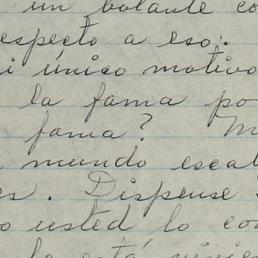 un volante co
especto a eso:
i único motivo
la fama po
fama? M
mundo esca
es. Dispense
o usted lo co
lo está